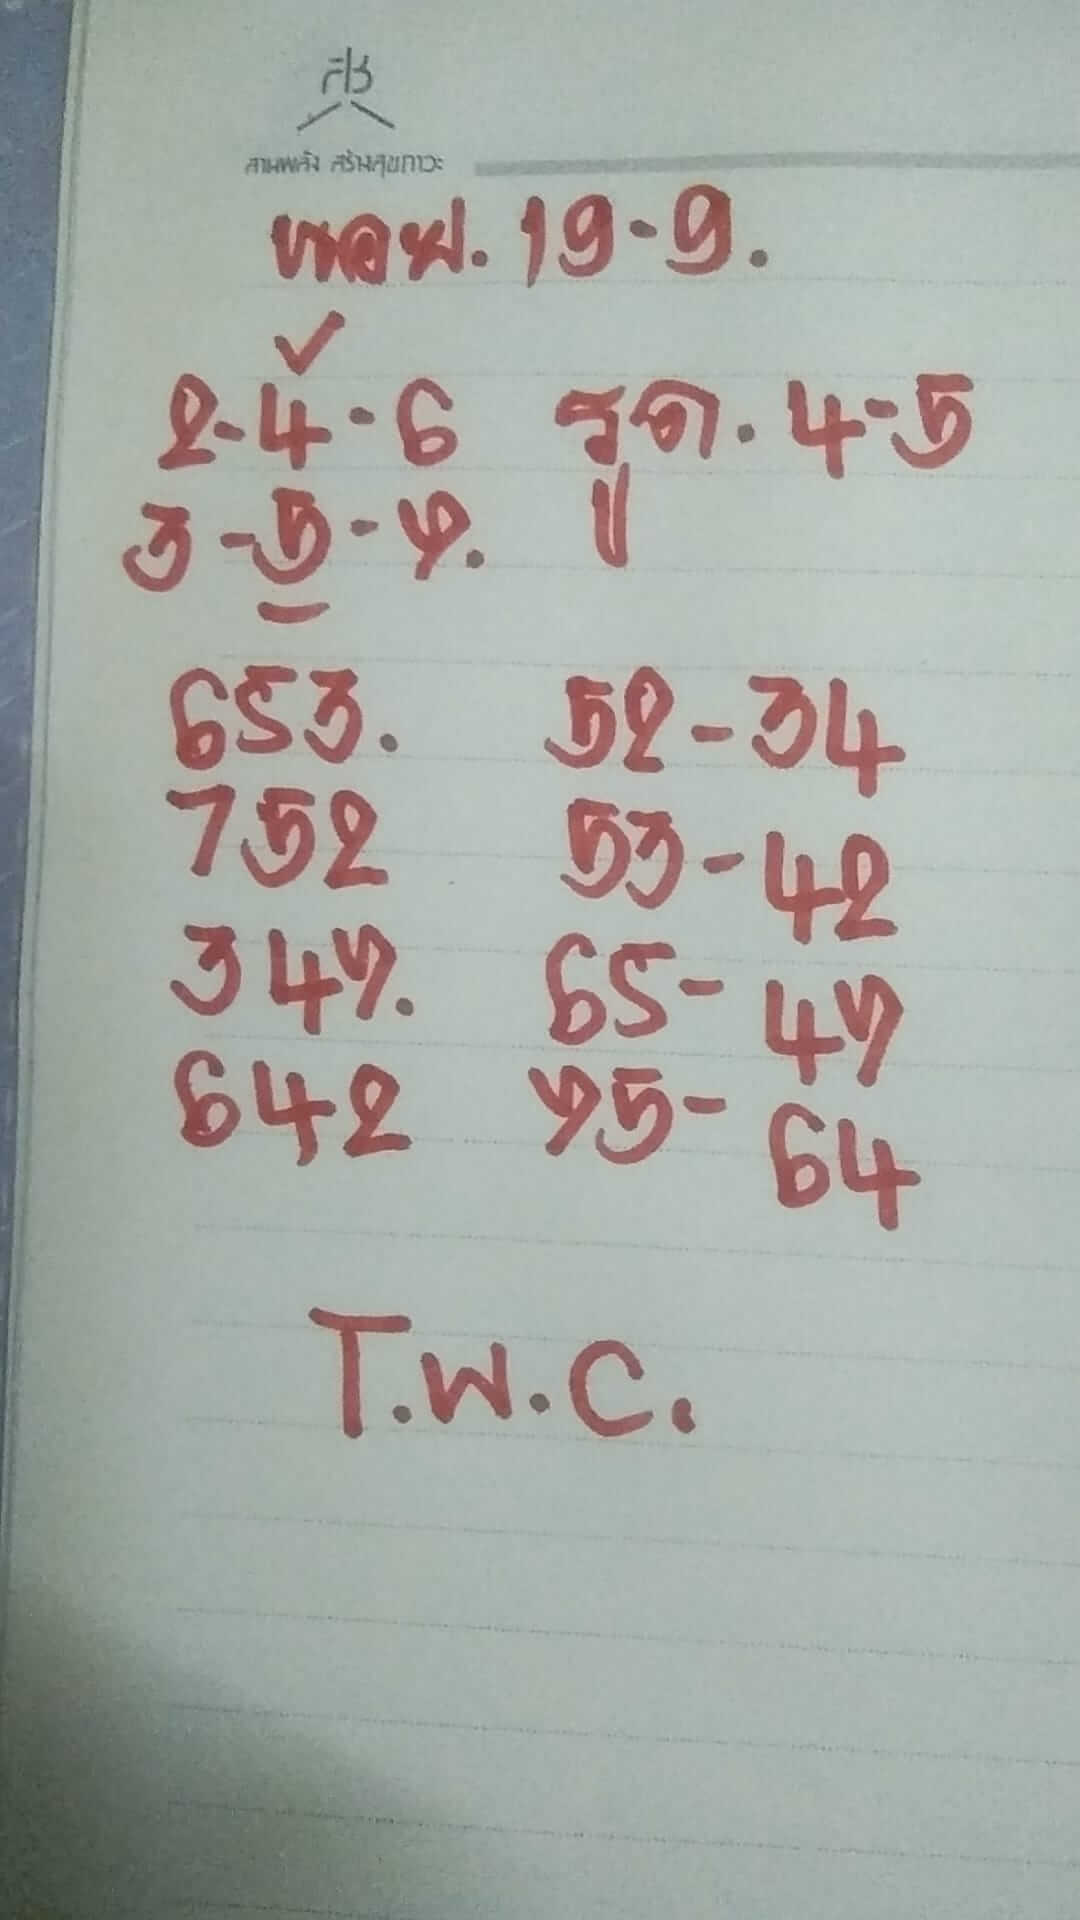 สช
สานพลัง สร้างสุขภาวะ
19-9.
2-4-6 รูด. 4-5
3-5-7.
653. 52-34
752 53-42
347. 65-47
642 75-64
T.W.C.